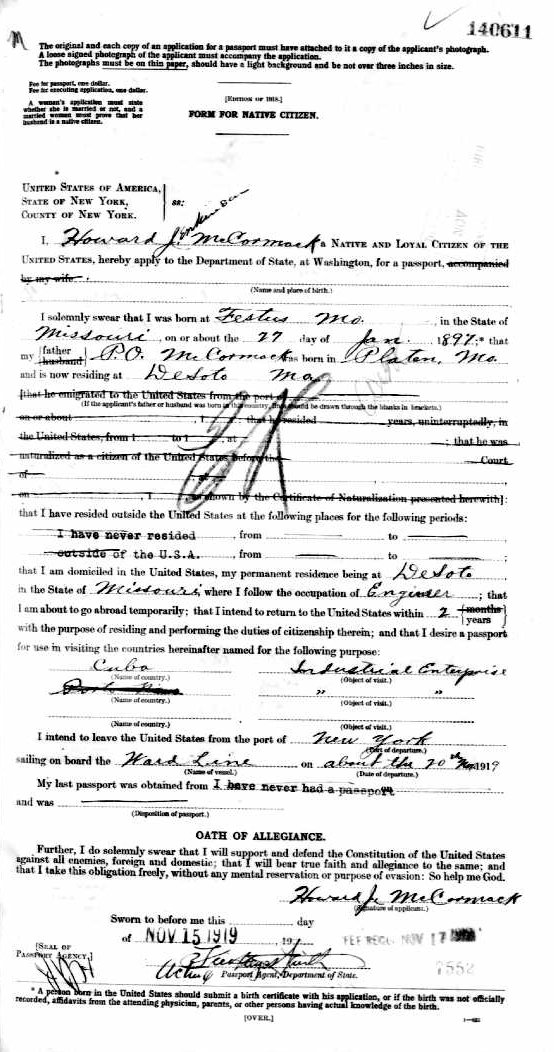 140611
The original and each copy of an application for a passport must have attached to it a copy of the applicant's photograph.
A loose signed photograph of the applicant must accompany the application.
The photographs must be on thin paper, should have a light background and be not over three inches in size.
Fee for passport, one dollar.
Fee for executing application, one dollar.
A woman's application must state
whether she is married or not, and a
married woman must prove that her
husband is a native citizen.
[EDITION OF 1918.]
FORM FOR NATIVE CITIZEN.
UNITED STATES OF AMERICA,
STATE OF NEW YORK,
COUNTY OF NEW YORK.
ss:
I, Howard J. McCormack a NATIVE AND LOYAL CITIZEN OF THE
UNITED STATES, hereby apply to the Department of State, at Washington, for a passport, accompanied
by my wife
(Name and place of birth.)
I solemnly swear that I was born at Festus Mo. in the State of
Missouri, on or about the 27 day of Jan. 1897,* that
my [father husband] P.O. McCormack was born in Platen, Mo.
and is now residing at DeSoto Mo
[that he emigrated to the United States from the port
(If the applicant's father or husband was born in this country, lines should be drawn through the blanks in brackets.)
on or about , 1 , that he resided years, uninterruptedly, in
the United States, from 1 to 1 , at ; that he was
naturalized as a citizen of the United States before the Court
of
on , 1 , as shown by the Certificate of Naturalization presented herewith];
that I have resided outside the United States at the following places for the following periods:
I have never resided , from to
outside of the U.S.A. , from to ;
that I am domiciled in the United States, my permanent residence being at DeSoto
in the State of Missouri, where I follow the occupation of Engineer ; that
I am about to go abroad temporarily; that I intend to return to the United States within 2 [months years]
with the purpose of residing and performing the duties of citizenship therein; and that I desire a passport
for use in visiting the countries hereinafter named for the following purpose:
Cuba Industrial Enterprise
(Name of country.) (Object of visit.)
" "
(Name of country.) (Object of visit.)
(Name of country.) (Object of visit.)
I intend to leave the United States from the port of New York
(Port of departure.)
sailing on board the Ward Line on about the 20th Nov 1919
(Name of vessel.) (Date of departure.)
My last passport was obtained from I have never had a passport
and was
(Disposition of passport.)
OATH OF ALLEGIANCE.
Further, I do solemnly swear that I will support and defend the Constitution of the United States
against all enemies, foreign and domestic; that I will bear true faith and allegiance to the same; and
that I take this obligation freely, without any mental reservation or purpose of evasion: So help me God.
Howard J. McCormack
(Signature of applicant.)
Sworn to before me this day
of NOV 15 1919 19 FEE REC'D. NOV 17 1919
[SEAL OF
PASSPORT AGENCY.]
Acting Passport Agent, Department of State.
7552
* A person born in the United States should submit a birth certificate with his application, or if the birth was not officially
recorded, affidavits from the attending physician, parents, or other persons having actual knowledge of the birth.
[OVER.]